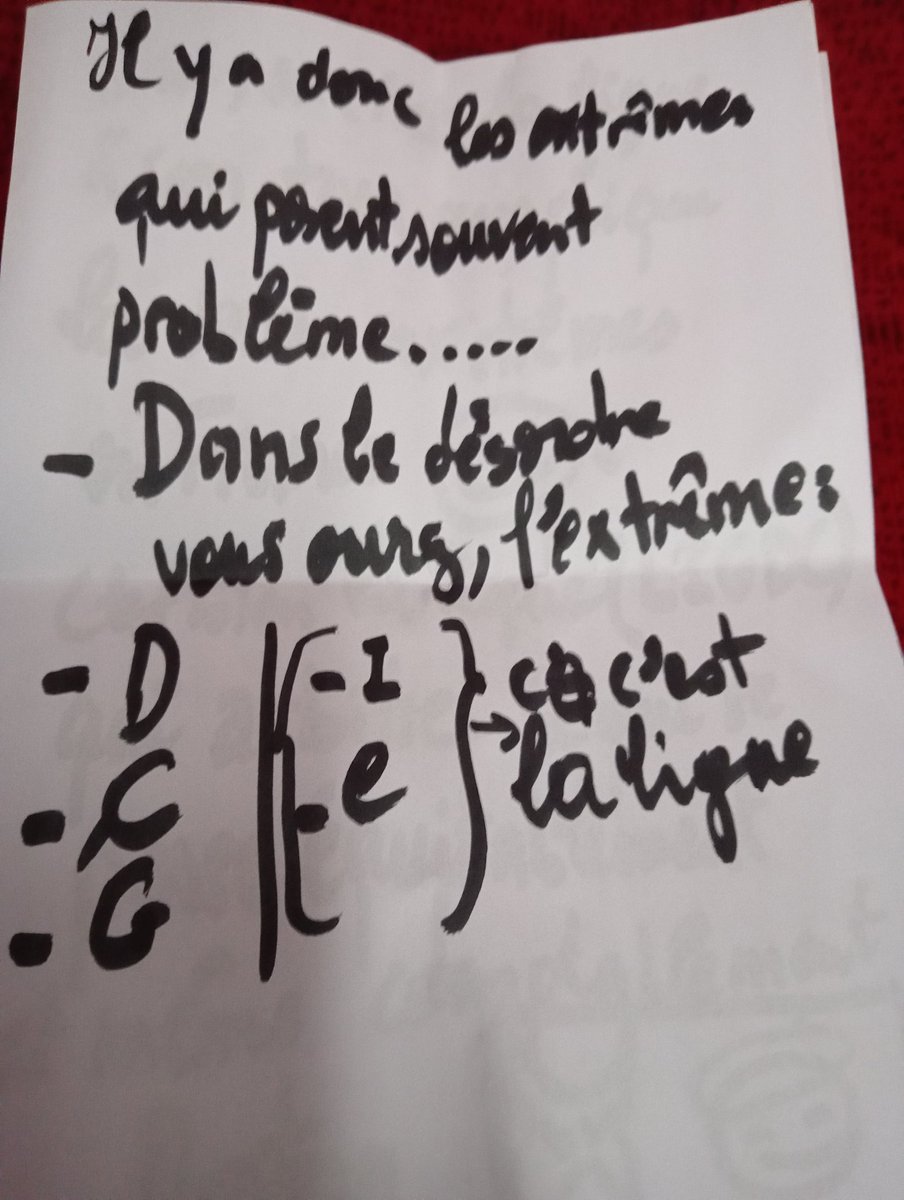 Il y a donc les extrêmes
qui posent souvent
problême.....
- Dans le désordre
vous aurez, l'extrême:
- D
- C
- G
- I
- e
→ c'est
la ligne